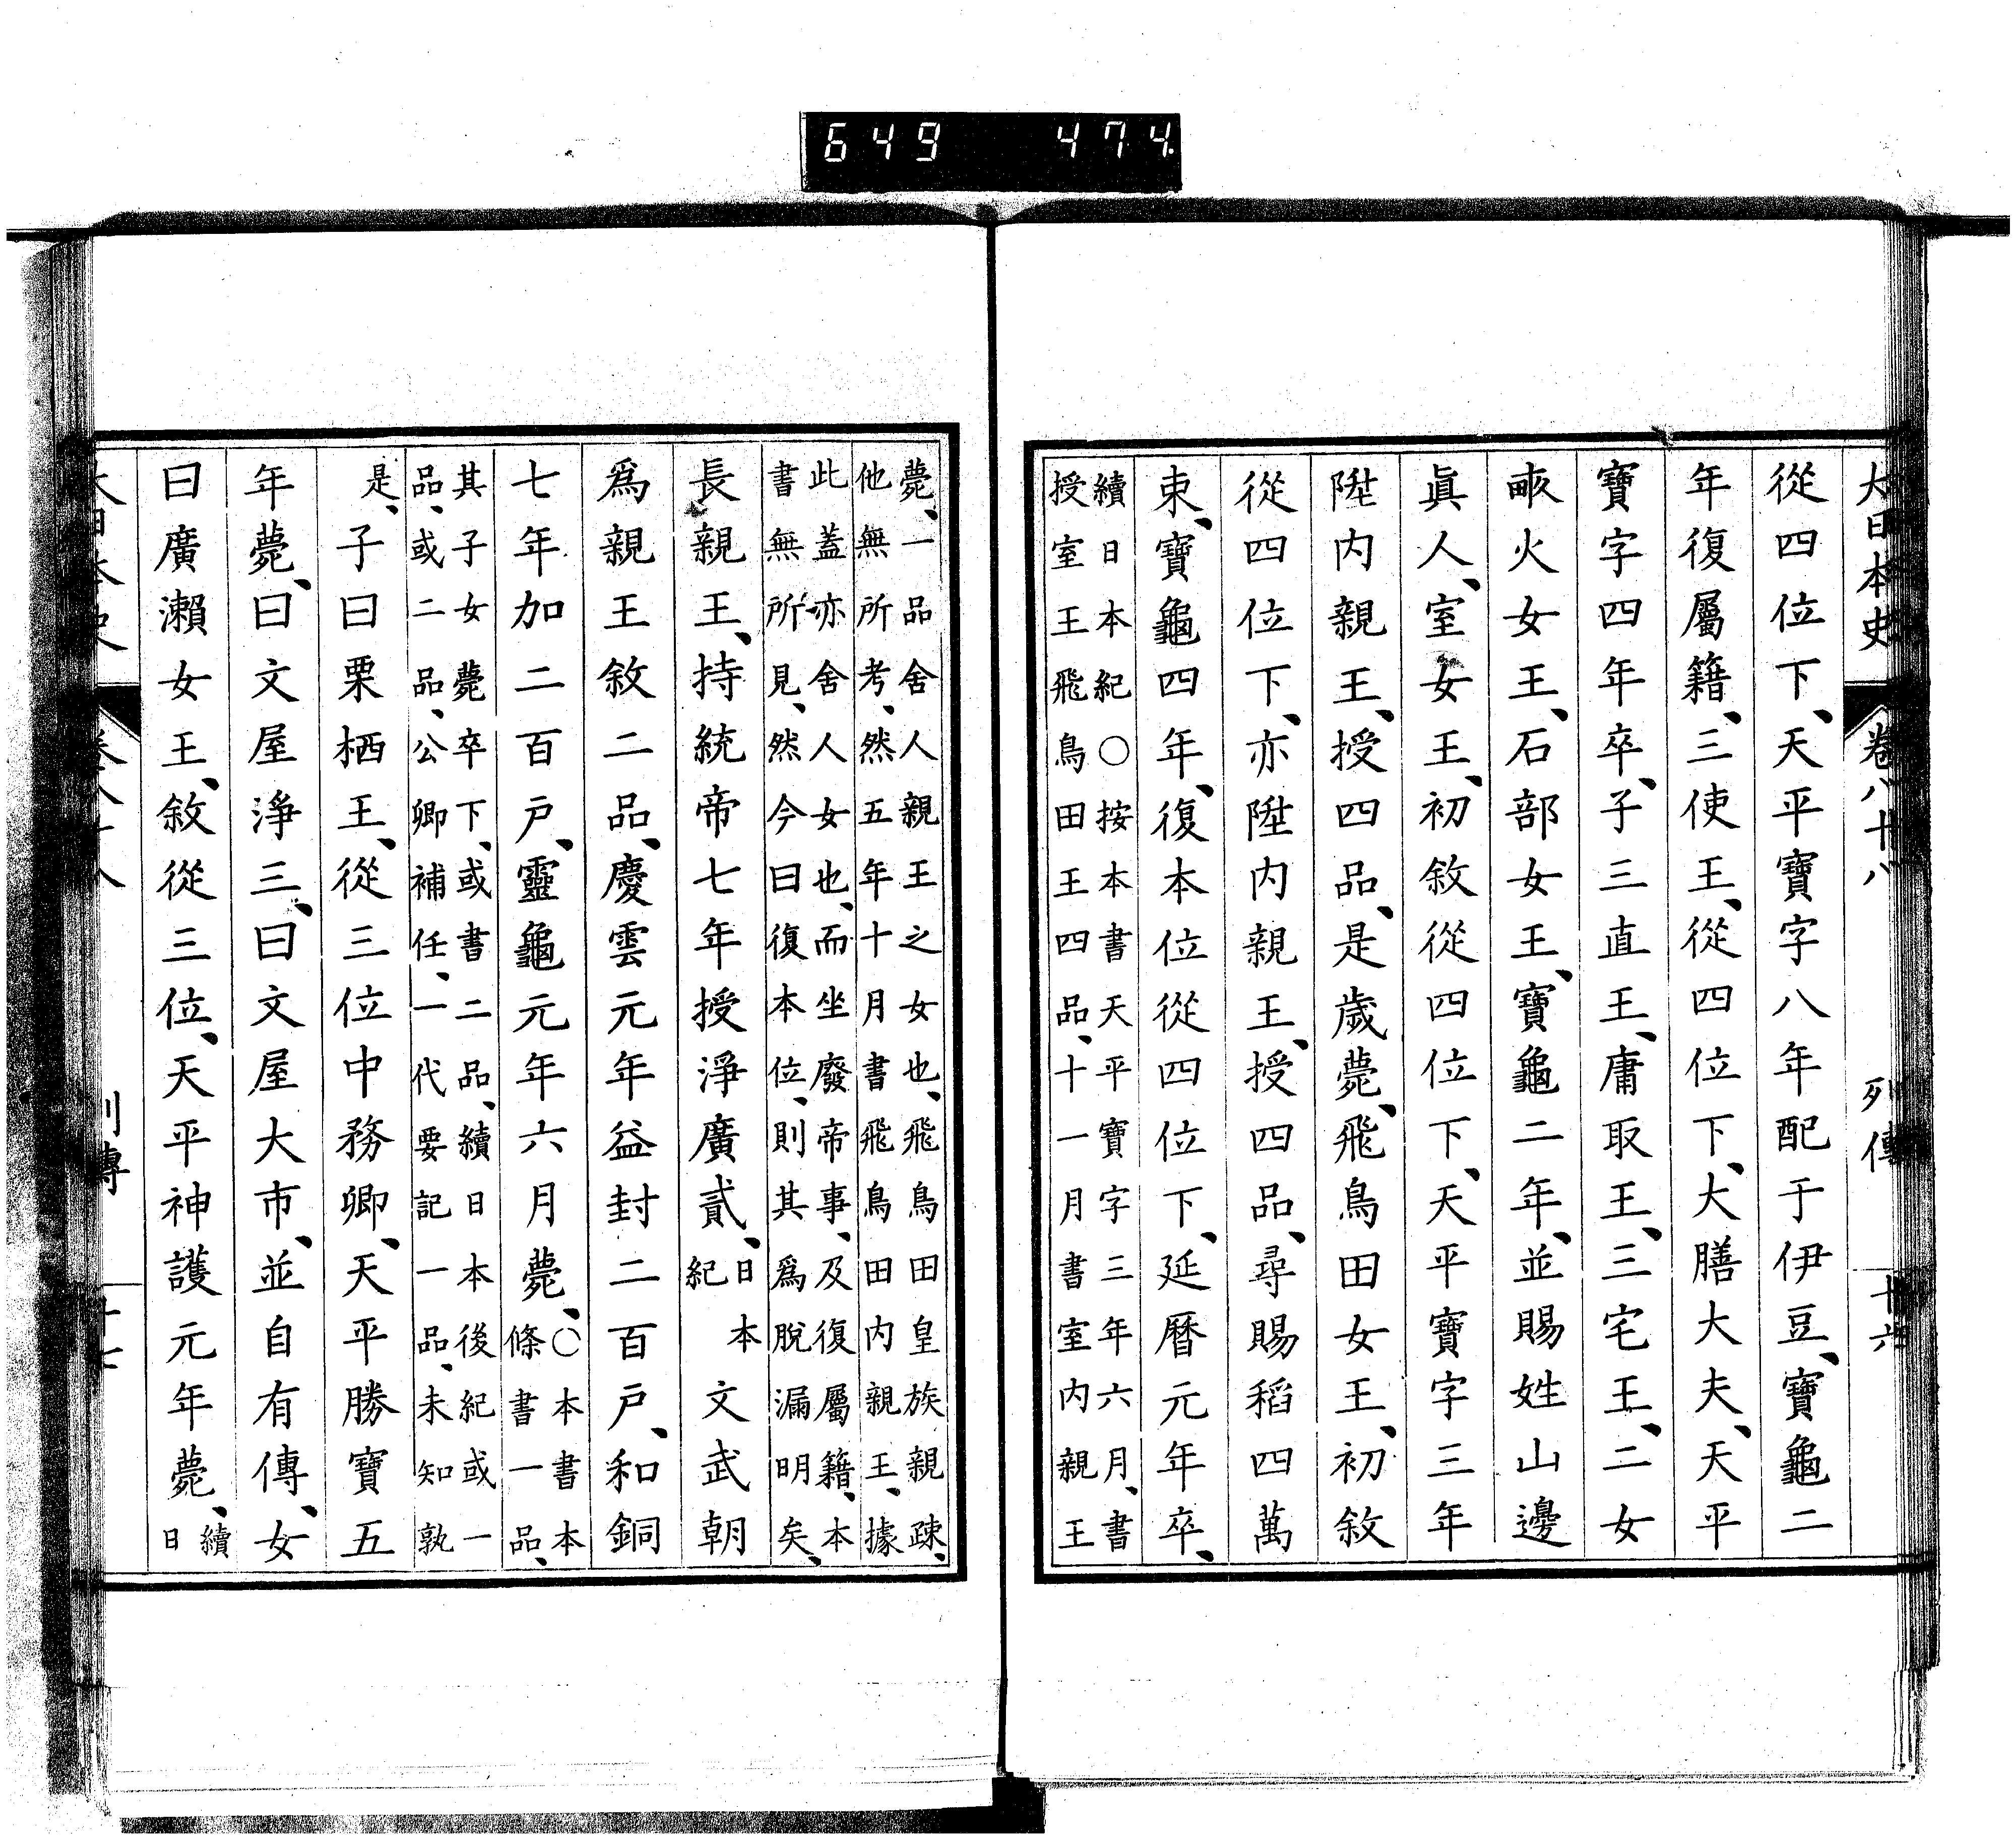 649 474
大日本史 卷八十八 列傳 十六
從四位下、天平寶字八年配于伊豆、寶龜二
年復屬籍、三使王、從四位下、大膳大夫、天平
寶字四年卒、子三直王、庸取王、三宅王、二女
畝火女王、石部女王、寶龜二年、並賜姓山邊
眞人、室女王、初敘從四位下、天平寶字三年
陞内親王、授四品、是歲薨、飛鳥田女王、初敘
從四位下、亦陞内親王、授四品、尋賜稻四萬
束、寶龜四年、復本位從四位下、延曆元年卒、
續日本紀○按本書天平寶字三年六月、書
授室王飛鳥田王四品、十一月書室内親王
薨、一品舍人親王之女也、飛鳥田皇族親疎、
他無所考、然五年十月書飛鳥田内親王、據
此蓋亦舍人女也、而坐廢帝事、及復屬籍、本
書無所見、然今曰復本位、則其爲脫漏明矣、
長親王、持統帝七年授淨廣貳、日本紀 文武朝
爲親王敘二品、慶雲元年益封二百戸、和銅
七年加二百戸、靈龜元年六月薨、○本書本條書一品、
其子女薨卒下、或書二品、續日本後紀或一
品、或二品、公卿補任、一代要記一品、未知孰
是、子曰栗栖王、從三位中務卿、天平勝寶五
年薨、曰文屋淨三、曰文屋大市、並自有傳、女
曰廣瀨女王、敘從三位、天平神護元年薨、續日